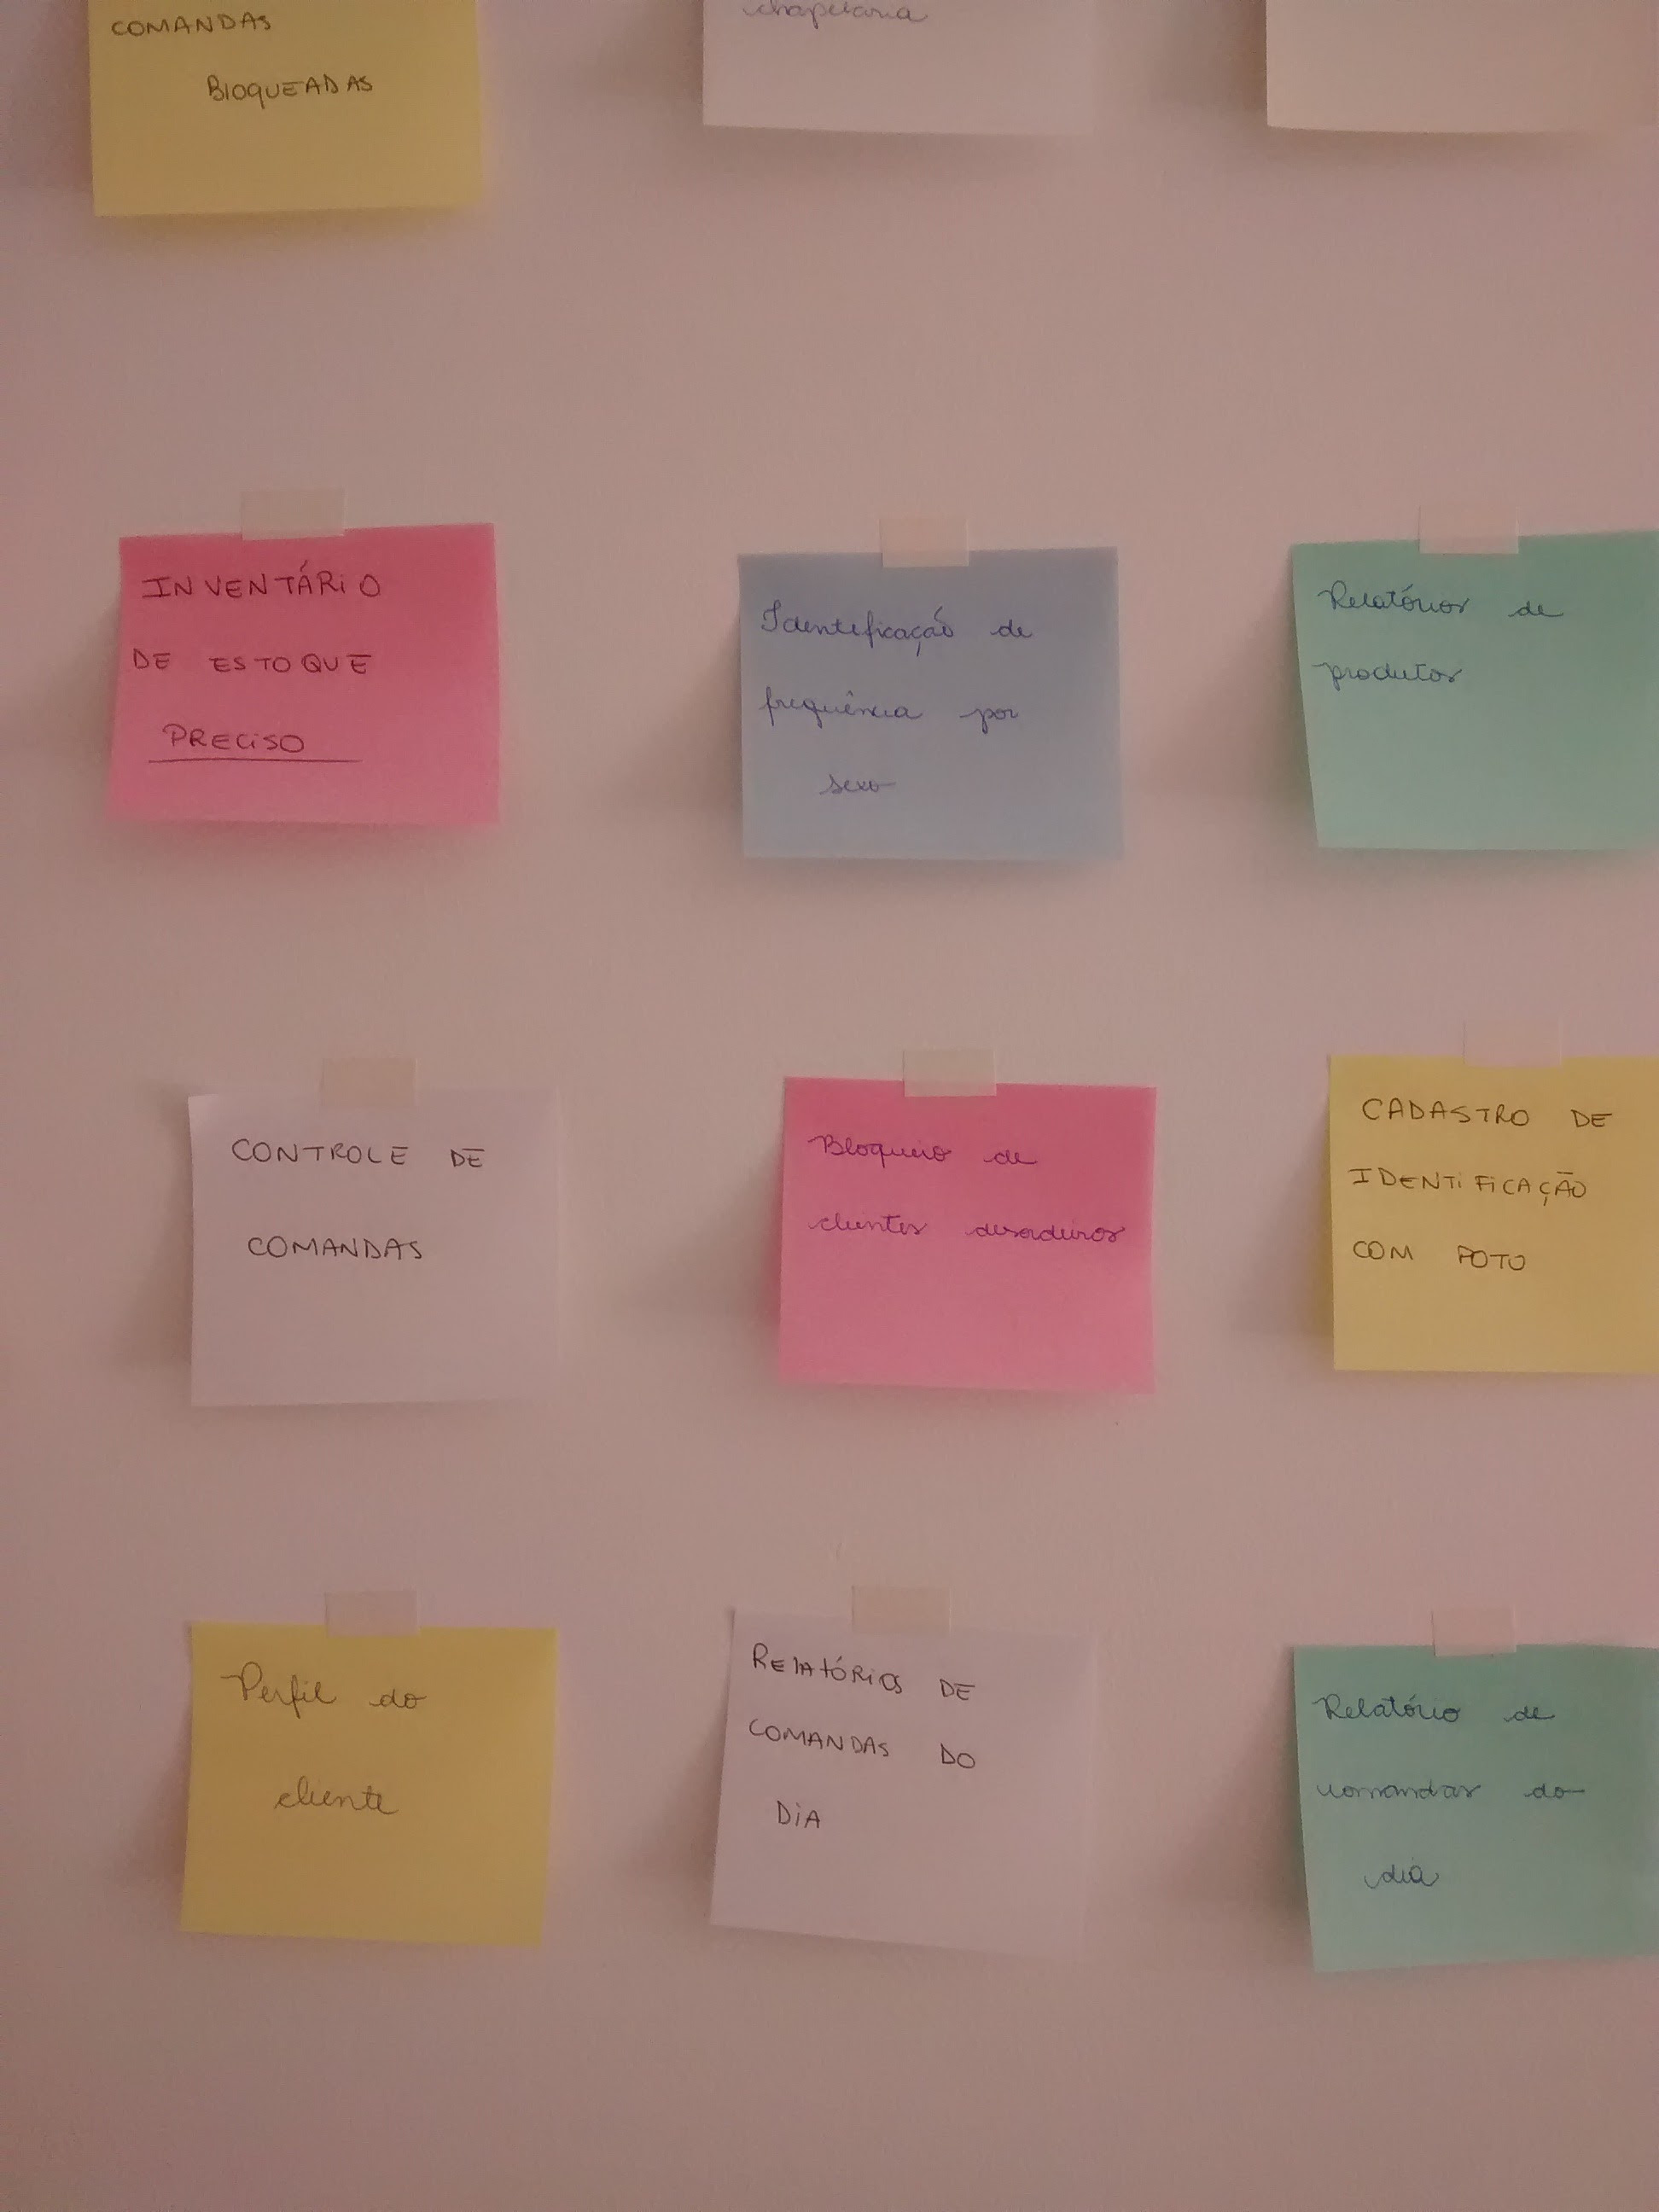 COMANDAS
BLOQUEADAS
chapelaria
INVENTÁRIO
DE ESTOQUE
PRECISO
Identificação de
frequência por
sexo
Relatórios de
produtos
CONTROLE DE
COMANDAS
Bloqueio de
clientes desordeiros
CADASTRO DE
IDENTIFICAÇÃO
COM FOTO
Perfil do
cliente
RELATÓRIOS DE
COMANDAS DO
DIA
Relatório de
comandas do
dia